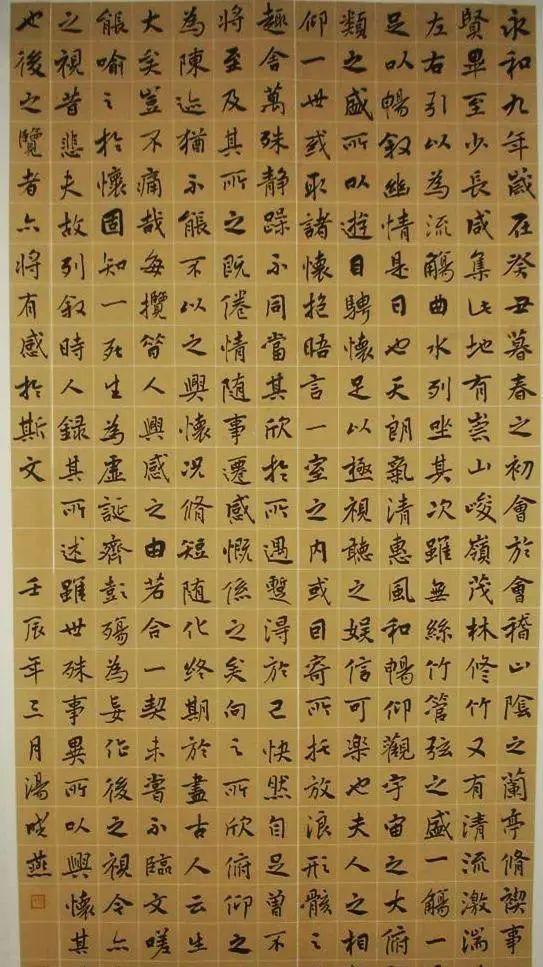 永和九年歲在癸丑暮春之初會於會稽山陰之蘭亭脩禊事
賢畢至少長咸集此地有崇山峻嶺茂林修竹又有清流激湍
左右引以為流觴曲水列坐其次雖無絲竹管弦之盛一觴一
足以暢敘幽情是日也天朗氣清惠風和暢仰觀宇宙之大俯
類之盛所以遊目騁懷足以極視聽之娛信可樂也夫人之相
仰一世或取諸懷抱晤言一室之內或因寄所托放浪形骸之
趣舍萬殊靜躁不同當其欣於所遇暫得於己快然自足曾不
將至及其所之既倦情隨事遷感慨係之矣向之所欣俯仰之
為陳迹猶不能不以之興懷況脩短隨化終期於盡古人云生
大矣豈不痛哉每攬昔人興感之由若合一契未嘗不臨文嗟
能喻之於懷固知一死生為虛誕齊彭殤為妄作後之視今亦
之視昔悲夫故列敘時人錄其所述雖世殊事異所以興懷其
也後之覽者亦將有感於斯文 壬辰年三月湯成燕